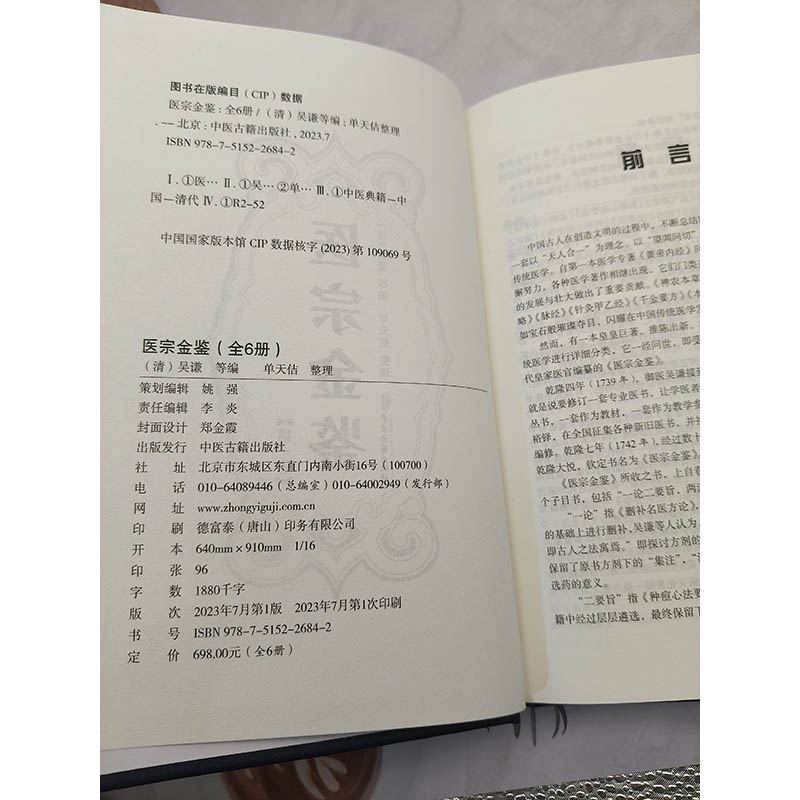 图书在版编目(CIP)数据
医宗金鉴:全6册/(清)吴谦等编;单天佶整理
.—北京:中医古籍出版社,2023.7
ISBN 978-7-5152-2684-2
Ⅰ.①医… Ⅱ.①吴… ②单… Ⅲ.①中医典籍—中
国—清代 Ⅳ.①R2-52
中国国家版本馆CIP数据核字(2023)第109069号
医宗金鉴(全6册)
(清)吴谦 等编 单天佶 整理
策划编辑 姚强
责任编辑 李炎
封面设计 郑金霞
出版发行 中医古籍出版社
社址 北京市东城区东直门内南小街16号(100700)
电话 010-64089446(总编室)010-64002949(发行部)
网址 www.zhongyiguji.com.cn
印刷 德富泰(唐山)印务有限公司
开本 640mm×910mm 1/16
印张 96
字数 1880千字
版次 2023年7月第1版 2023年7月第1次印刷
书号 ISBN 978-7-5152-2684-2
定价 698.00元(全6册)
前言
中国古人在创造文明的过程中,不断总结
一套以“天人合一”为理念,以“望闻问切”
传统医学。自第一本医学专著《黄帝内经》问
懈努力,各种医学著作相继出现,它们门类
的发展与壮大做出了重要贡献。《神农本草
略》《脉经》《针灸甲乙经》《千金要方》《本
如宝石般璀璨夺目,闪耀在中国传统医学
然而,有一本皇皇巨著,推陈出新,
统医学进行详细分类,它一经问世,即受
代皇家医官编纂的《医宗金鉴》。
乾隆四年(1739年),御医吴谦接
就是说要修订一套专业医书,让学医者
丛书,一套作为教材,一套作为教学参
裕铎,在全国征集各种新旧医书,并
编修。乾隆七年(1742年),经过数十
乾隆大悦,钦定书名为《医宗金鉴》
《医宗金鉴》所收之书,上自
个子目书,包括“一论二要旨,两
“一论”指《删补名医方论》,
的基础上进行删补,吴谦等人认为,
即古人之法寓焉。”即探讨方剂的
保留了原书方剂下的“集注”,
选药的意义。
“二要旨”指《种痘心法要
籍中经过层层遴选,最终保留下